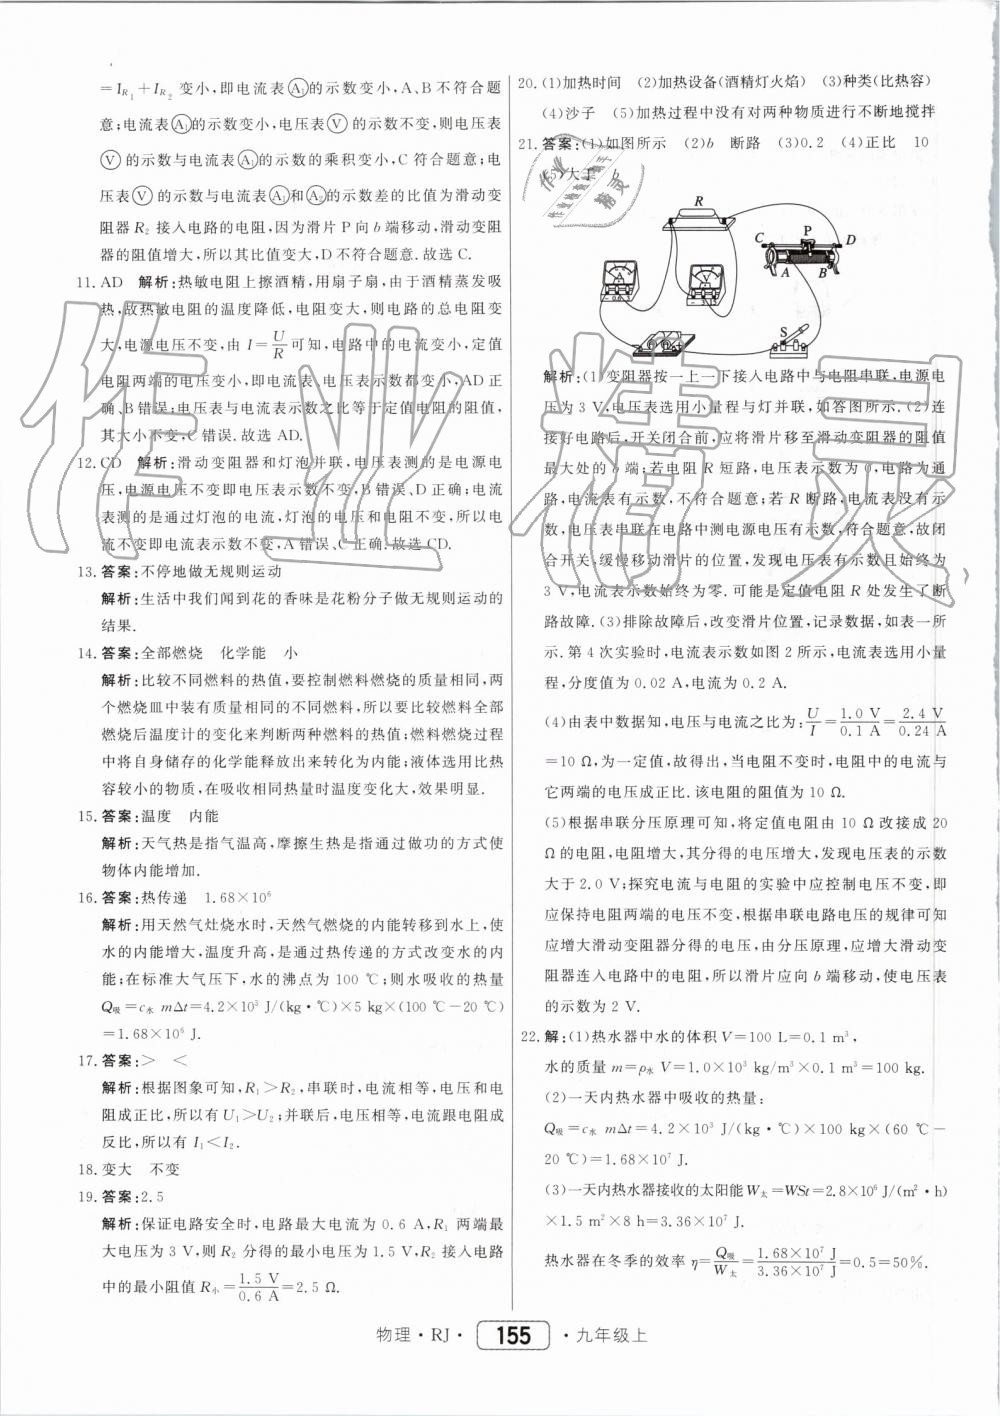 =I_R₁+I_R₂ 变小,即电流表Ⓐ₁的示数变小,A、B 不符合题
意;电流表Ⓐ₁的示数变小,电压表Ⓥ的示数不变,则电压表
Ⓥ的示数与电流表Ⓐ₁的示数的乘积变小,C 符合题意;电
压表Ⓥ的示数与电流表Ⓐ₁和Ⓐ₂的示数差的比值为滑动变
阻器 R₂ 接入电路的电阻,因为滑片 P 向 b 端移动,滑动变阻
器的阻值增大,所以其比值变大,D 不符合题意.故选 C.
11. AD 解析:热敏电阻上擦酒精,用扇子扇,由于酒精蒸发吸
热,故热敏电阻的温度降低,电阻变大,则电路的总电阻变
大,电源电压不变,由 I=U/R 可知,电路中的电流变小,定值
电阻两端的电压变小,即电流表、电压表示数都变小,AD 正
确、B 错误;电压表与电流表示数之比等于定值电阻的阻值,
其大小不变,C 错误.故选 AD.
12. CD 解析:滑动变阻器和灯泡并联,电压表测的是电源电
压,电源电压不变即电压表示数不变,B 错误、D 正确;电流
表测的是通过灯泡的电流,灯泡的电压和电阻不变,所以电
流不变即电流表示数不变,A 错误、C 正确.故选 CD.
13. 答案:不停地做无规则运动
解析:生活中我们闻到花的香味是花粉分子做无规则运动的
结果.
14. 答案:全部燃烧 化学能 小
解析:比较不同燃料的热值,要控制燃料燃烧的质量相同,两
个燃烧皿中装有质量相同的不同燃料,所以要比较燃料全部
燃烧后温度计的变化来判断两种燃料的热值;燃料燃烧过程
中将自身储存的化学能释放出来转化为内能;液体选用比热
容较小的物质,在吸收相同热量时温度变化大,效果明显.
15. 答案:温度 内能
解析:天气热是指气温高,摩擦生热是指通过做功的方式使
物体内能增加.
16. 答案:热传递 1.68×10⁶
解析:用天然气灶烧水时,天然气燃烧的内能转移到水上,使
水的内能增大,温度升高,是通过热传递的方式改变水的内
能;在标准大气压下,水的沸点为 100 ℃;则水吸收的热量
Q吸=c水 mΔt=4.2×10³ J/(kg·℃)×5 kg×(100 ℃-20 ℃)
=1.68×10⁶ J.
17. 答案:> <
解析:根据图象可知,R₁>R₂,串联时,电流相等,电压和电
阻成正比,所以有 U₁>U₂;并联后,电压相等,电流跟电阻成
反比,所以有 I₁<I₂.
18. 变大 不变
19. 答案:2.5
解析:保证电路安全时,电路最大电流为 0.6 A,R₁ 两端最
大电压为 3 V,则 R₂ 分得的最小电压为 1.5 V,R₂ 接入电路
中的最小阻值 R小=1.5 V/0.6 A=2.5 Ω.
20. (1)加热时间 (2)加热设备(酒精灯火焰) (3)种类(比热容)
(4)沙子 (5)加热过程中没有对两种物质进行不断地搅拌
21. 答案:(1)如图所示 (2)b 断路 (3)0.2 (4)正比 10
(5)大于 b
R
P
C
D
A
B
A
V
- 0.6 3
- 3 15
S
解析:(1)变阻器按一上一下接入电路中与电阻串联,电源电
压为 3 V,电压表选用小量程与灯并联,如答图所示.(2)连
接好电路后,开关闭合前,应将滑片移至滑动变阻器的阻值
最大处的 b 端;若电阻 R 短路,电压表示数为 0,电路为通
路,电流表有示数,不符合题意;若 R 断路,电流表没有示
数,电压表串联在电路中测电源电压有示数,符合题意,故闭
合开关,缓慢移动滑片的位置,发现电压表有示数且始终为
3 V,电流表示数始终为零.可能是定值电阻 R 处发生了断
路故障.(3)排除故障后,改变滑片位置,记录数据,如表一所
示.第 4 次实验时,电流表示数如图 2 所示,电流表选用小量
程,分度值为 0.02 A,电流为 0.2 A.
(4)由表中数据知,电压与电流之比为:U/I=1.0 V/0.1 A=2.4 V/0.24 A
=10 Ω,为一定值,故得出,当电阻不变时,电阻中的电流与
它两端的电压成正比.该电阻的阻值为 10 Ω.
(5)根据串联分压原理可知,将定值电阻由 10 Ω 改接成 20
Ω 的电阻,电阻增大,其分得的电压增大,发现电压表的示数
大于 2.0 V;探究电流与电阻的实验中应控制电压不变,即
应保持电阻两端的电压不变,根据串联电路电压的规律可知
应增大滑动变阻器分得的电压,由分压原理,应增大滑动变
阻器连入电路中的电阻,所以滑片应向 b 端移动,使电压表
的示数为 2 V.
22. 解:(1)热水器中水的体积 V=100 L=0.1 m³,
水的质量 m=ρ水 V=1.0×10³ kg/m³×0.1 m³=100 kg.
(2)一天内热水器中吸收的热量:
Q吸=c水 mΔt=4.2×10³ J/(kg·℃)×100 kg×(60 ℃-
20 ℃)=1.68×10⁷ J.
(3)一天内热水器接收的太阳能 W太=WSt=2.8×10⁶ J/(m²·h)
×1.5 m²×8 h=3.36×10⁷ J.
热水器在冬季的效率 η=Q吸/W太=1.68×10⁷ J/3.36×10⁷ J=0.5=50%.
物理·RJ· 155 ·九年级上
作业精灵